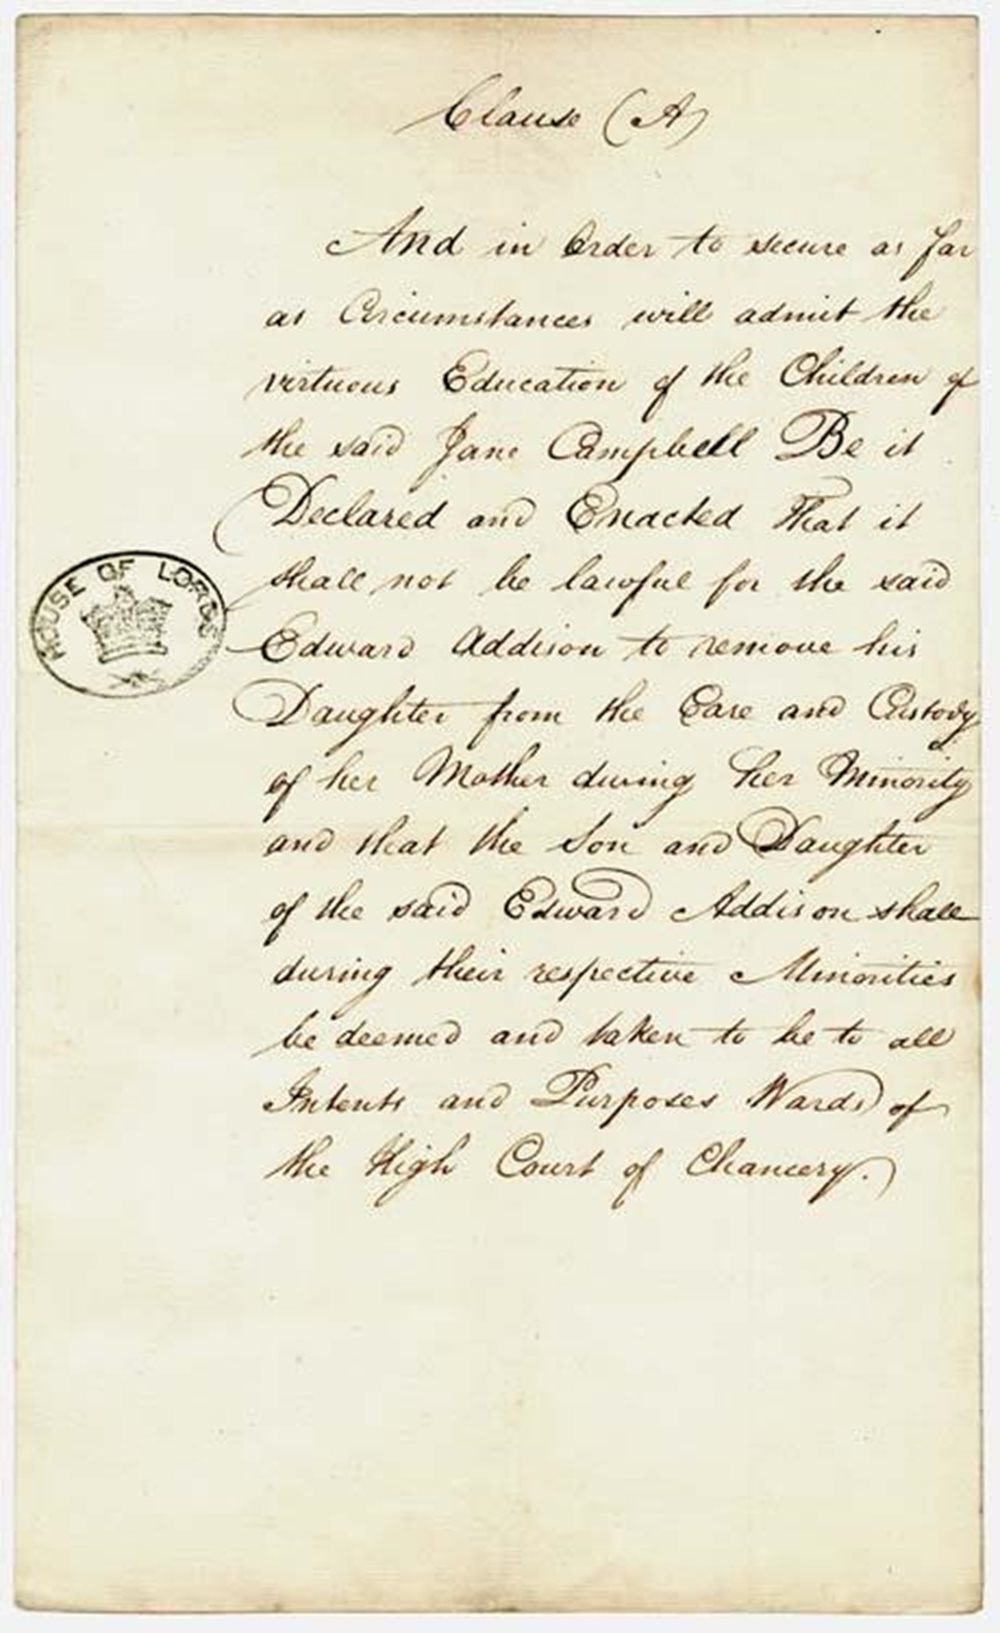 Clause (A)
And in Order to secure as far
as Circumstances will admit the
virtuous Education of the Children of
the said Jane Campbell Be it
Declared and Enacted That it
shall not be lawful for the said
HOUSE OF LORDS
Edward Addison to remove his
Daughter from the Care and Custody
of her Mother during her Minority
and that the Son and Daughter
of the said Edward Addison shall
during their respective Minorities
be deemed and taken to be to all
Intents and Purposes Wards of
the High Court of Chancery.